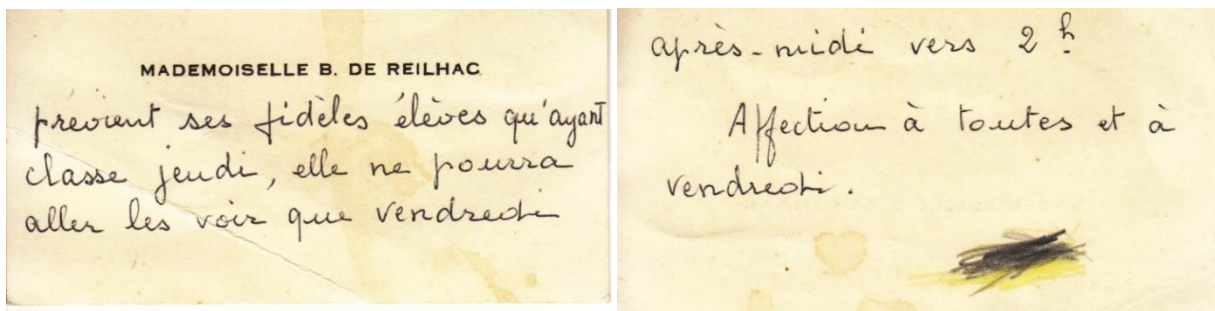 MADEMOISELLE B. DE REILHAC
prévient ses fidèles élèves qu'ayant
classe jeudi, elle ne pourra
aller les voir que vendredi
après-midi vers 2 h
Affection à toutes et à
vendredi.